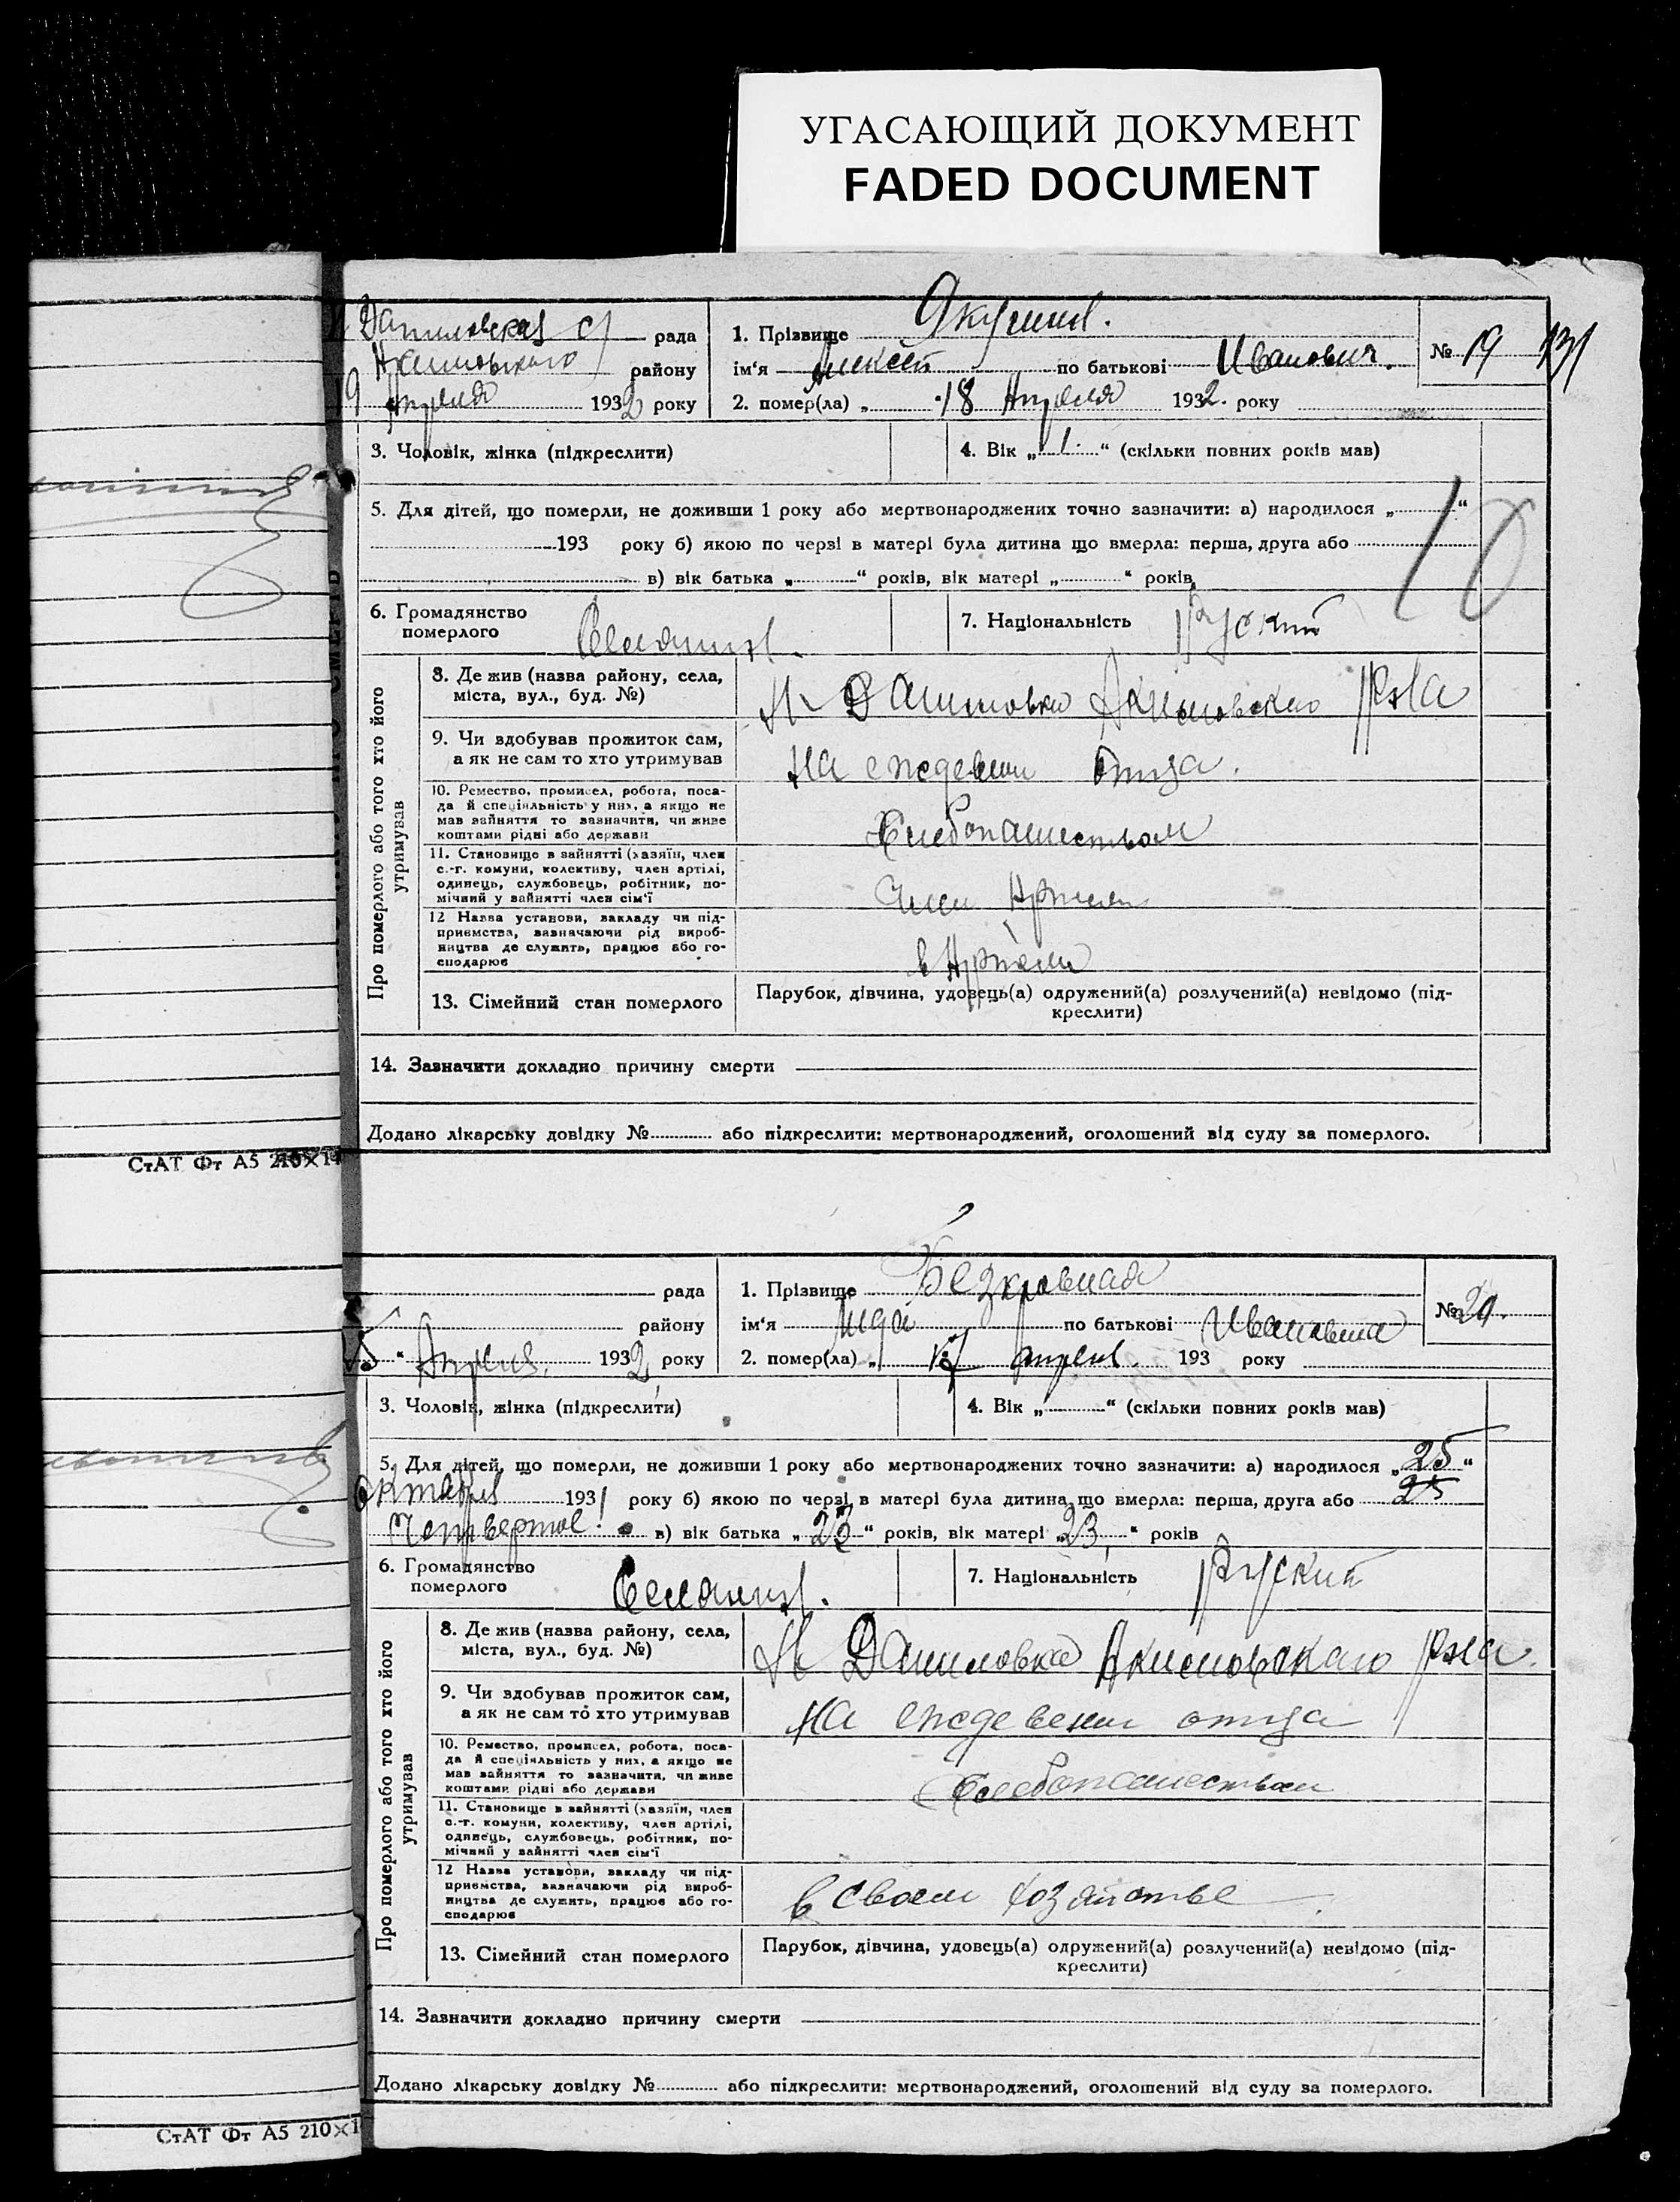 УГАСАЮЩИЙ ДОКУМЕНТ
FADED DOCUMENT
Даниловская с/ рада
Акимовского району
19 Апреля 1932 року
1. Прізвище Якушин.
ім‘я Алексей по батькові Иванович.
2. помер(ла) „ 18 Апреля 1932. року
№ 19
131
3. Чоловік, жінка (підкреслити)
4. Вік „ 1. “ (скільки повних років мав)
5. Для дітей, що померли, не доживши 1 року або мертвонароджених точно зазначити: а) народилося „ “
193 року б) якою по черзі в матері була дитина що вмерла: перша, друга або
в) вік батька „ “ років, вік матері „ “ років
10
6. Громадянство
померлого
Селянин.
7. Національність Руский
Про померлого або того хто його
утримував
8. Де жив (назва району, села,
міста, вул., буд. №)
М Даниловка Акимовского р-на
9. Чи здобував прожиток сам,
а як не сам то хто утримував
На еждевени отца.
10. Ремество, промисел, робота, поса-
да й спеціяльність у них, а якщо не
мав зайняття то зазначити, чи живе
коштами рідні або держави
Хлебопашеством
11. Становище в зайнятті (хазяїн, член
с.-г. комуни, колективу, член артілі,
одинець, службовець, робітник, по-
мічний у зайнятті член сім‘ї
Член Артели
12 Назва установи, закладу чи під-
приємства, зазначаючи рід вироб-
ництва де служить, працює або го-
сподарює
в Артели
13. Сімейний стан померлого
Парубок, дівчина, удовець(а) одружений(а) розлучений(а) невідомо (під-
креслити)
14. Зазначити докладно причину смерти
Додано лікарську довідку № або підкреслити: мертвонароджений, оголошений від суду за померлого.
СтАТ Фт А5 210×14
рада
району
“ Апреля. 1932 року
1. Прізвище Безкровная
ім‘я Лида по батькові Ивановна
2. помер(ла) „ апреля. 193 року
№ 20.
3. Чоловік, жінка (підкреслити)
4. Вік „ “ (скільки повних років мав)
5. Для дітей, що померли, не доживши 1 року або мертвонароджених точно зазначити: а) народилося „ 25 “
Октября 1931 року б) якою по черзі в матері була дитина що вмерла: перша, друга або 25
Четвертое! в) вік батька „ 23 “ років, вік матері „ 23, “ років
6. Громадянство
померлого
Селянин.
7. Національність Руский
Про померлого або того хто його
утримував
8. Де жив (назва району, села,
міста, вул., буд. №)
М Даниловка Акимовскаго р-на.
9. Чи здобував прожиток сам,
а як не сам то хто утримував
На еждевении отца
10. Ремество, промисел, робота, поса-
да й спеціяльність у них, а якщо не
мав зайняття то зазначити, чи живе
коштами рідні або держави
Хлебопашеством
11. Становище в зайнятті (хазяїн, член
с.-г. комуни, колективу, член артілі,
одинець, службовець, робітник, по-
мічний у зайнятті член сім‘ї
12 Назва установи, закладу чи під-
приємства, зазначаючи рід вироб-
ництва де служить, працює або го-
сподарює
в своем хозяистве
13. Сімейний стан померлого
Парубок, дівчина, удовець(а) одружений(а) розлучений(а) невідомо (під-
креслити)
14. Зазначити докладно причину смерти
Додано лікарську довідку № або підкреслити: мертвонароджений, оголошений від суду за померлого.
СтАТ Фт А5 210×1